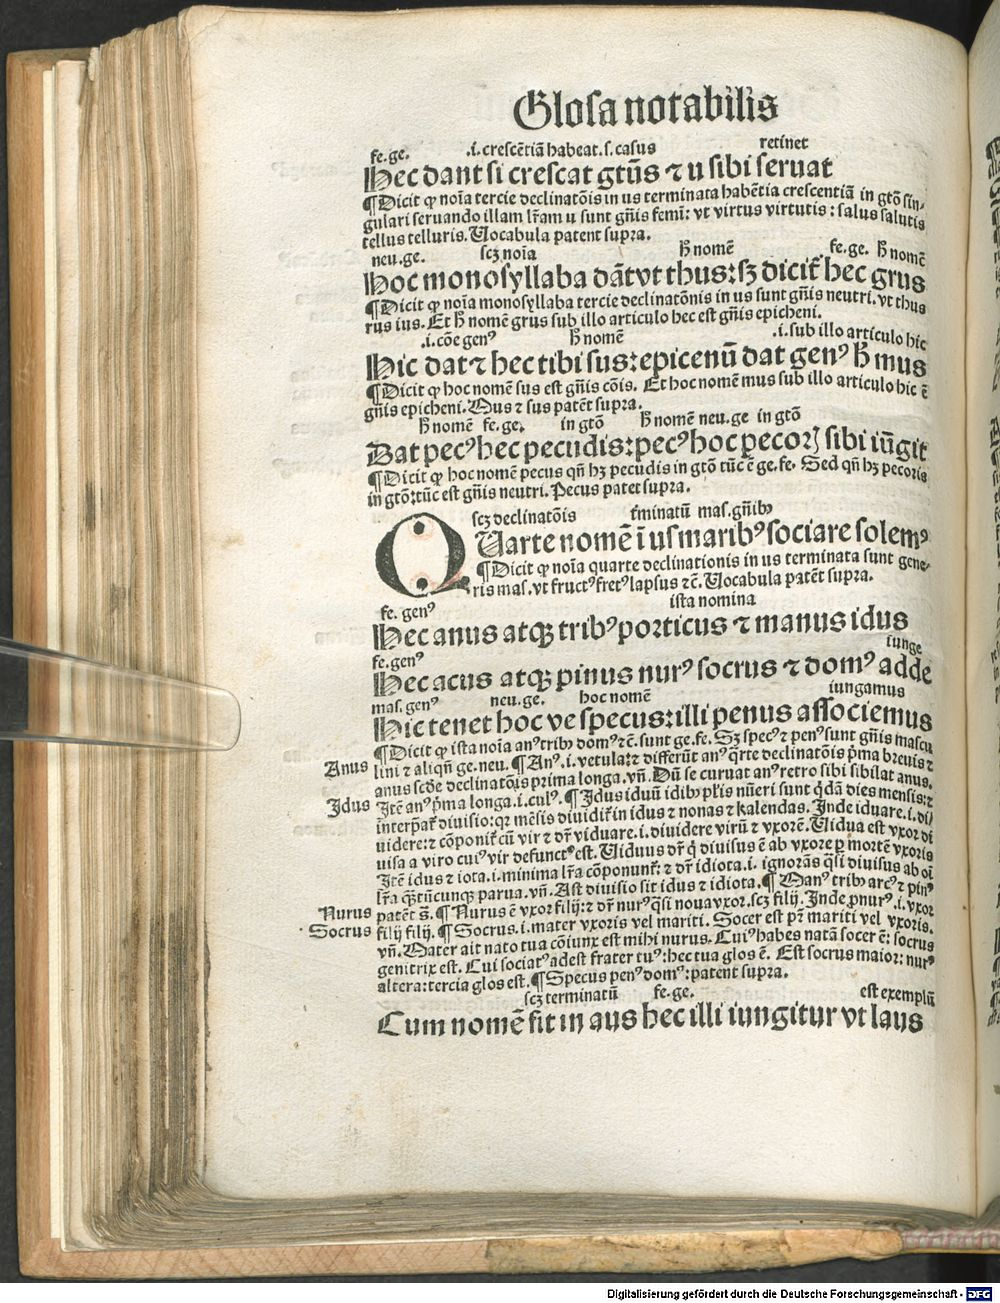 Glosa notabilis
fe.ge. .i. crescẽtiã habeat.s.casus retinet
Hec dant si crescat gtũs ⁊ u sibi seruat
¶Dicit ꝙ noĩa tercie declinatõis in us terminata habẽtia crescentiã in gtõ sin-
gulari seruando illam lr̃am u sunt gñis femi: vt virtus virtutis: salus salutis
tellus telluris. Vocabula patent supra.
neu.ge. scꝫ noĩa h̃ nomẽ fe.ge. h̃ nomẽ
Hoc monosyllaba dãt vt thus: sꝫ dicit̃ hec grus
¶Dicit ꝙ noĩa monosyllaba tercie declinatõnis in us sunt gñis neutri. vt thus
rus ius. Et h̃ nomẽ grus sub illo articulo hec est gñis epicheni.
.i. cõe genꝰ h̃ nomẽ .i. sub illo articulo hic
Hic dat ⁊ hec tibi sus: epicenũ dat genꝰ h̃ mus
¶Dicit ꝙ hoc nomẽ sus est gñis cõis. Et hoc nomẽ mus sub illo articulo hic ẽ
gñis epicheni. Mus ⁊ sus patẽt supra.
h̃ nomẽ fe.ge. in gtõ h̃ nomẽ neu.ge in gtõ
Dat pecꝰ hec pecudis: pecꝰ hoc pecoꝝ sibi iũgit
¶Dicit ꝙ hoc nomẽ pecus qñ hꝫ pecudis in gtõ tũc ẽ ge.fe. Sed qñ hꝫ pecoris
in gtõ: tũc est gñis neutri. Pecus patet supra.
scꝫ declinatõis t̃minatũ mas.gñibꝰ
QVarte nomẽ ĩ us maribꝰ sociare solemꝰ
¶Dicit ꝙ noĩa quarte declinationis in us terminata sunt gene-
ris mas. vt fructꝰ fretꝰ lapsus ⁊c̃. Vocabula patẽt supra.
fe. genꝰ ista nomina
Hec anus atqꝫ tribꝰ porticus ⁊ manus idus
fe.genꝰ iunge
Hec acus atqꝫ pinus nurꝰ socrus ⁊ domꝰ adde
mas.genꝰ neu.ge. hoc nomẽ iungamus
Hic tenet hoc ve specus: illi penus associemus
¶Dicit ꝙ ista noĩa anꝰ tribꝰ domꝰ ⁊c̃. sunt ge.fe. Sꝫ specꝰ ⁊ penꝰ sunt gñis mascu
Anus lini ⁊ aliqñ ge.neu. ¶Anꝰ.i. vetula: ⁊ differũt anꝰ q̃rte declinatõis p̃ma breuis ⁊
anus scd̃e declinatõis prima longa. vñ. Dũ se curuat anꝰ retro sibi sibilat anus.
Idus Itẽ anꝰ p̃ma longa.i. culꝰ. ¶Idus iduũ idibꝰ pl̃is nũeri sunt q̃dã dies mensis: ⁊
interp̃at̃ diuisio: qꝛ mẽsis diuidit̃ in idus ⁊ nonas ⁊ kalendas. Inde iduare.i. di/
uidere: ⁊ cõponit̃ cũ vir ⁊ dr̃ viduare.i. diuidere virũ ⁊ vxorẽ. Vidua est vxor di
uisa a viro cuiꝰ vir defunctꝰ est. Viduus dr̃ q̃ diuisus ẽ ab vxore ꝑ mortẽ vxoris
Itẽ idus ⁊ iota.i. minima lr̃a cõponunt̃: ⁊ dr̃ idiota.i. ignorãs q̃si diuisus ab oĩ
lr̃a q̃ntũcunqꝫ parua. vñ. Ast diuisio sit idus ⁊ idiota. ¶Manꝰ tribꝰ arcꝰ ⁊ pinꝰ
Nurus patẽt s̃. ¶Nurus ẽ vxor filij: ⁊ dr̃ nurꝰ q̃si noua vxor. scꝫ filij. Inde pnurꝰ.i. vxor
Socrus filij filij. ¶Socrus.i. mater vxoris vel mariti. Socer est pr̃ mariti vel vxoris.
vñ. Mater ait nato tua cõiunx est mihi nurus. Cuiꝰ habes natã socer ẽ: socrus
genitrix est. Cui sociatꝰ adest frater tuꝰ: hec tua glos ẽ. Est socrus maior: nurꝰ
altera: tercia glos est. ¶Specus penꝰ domꝰ: patent supra.
scꝫ terminatũ fe.ge. est exemplũ
Cum nomẽ fit in aus hec illi iungitur vt laus
Digitalisierung gefördert durch die Deutsche Forschungsgemeinschaft - DFG